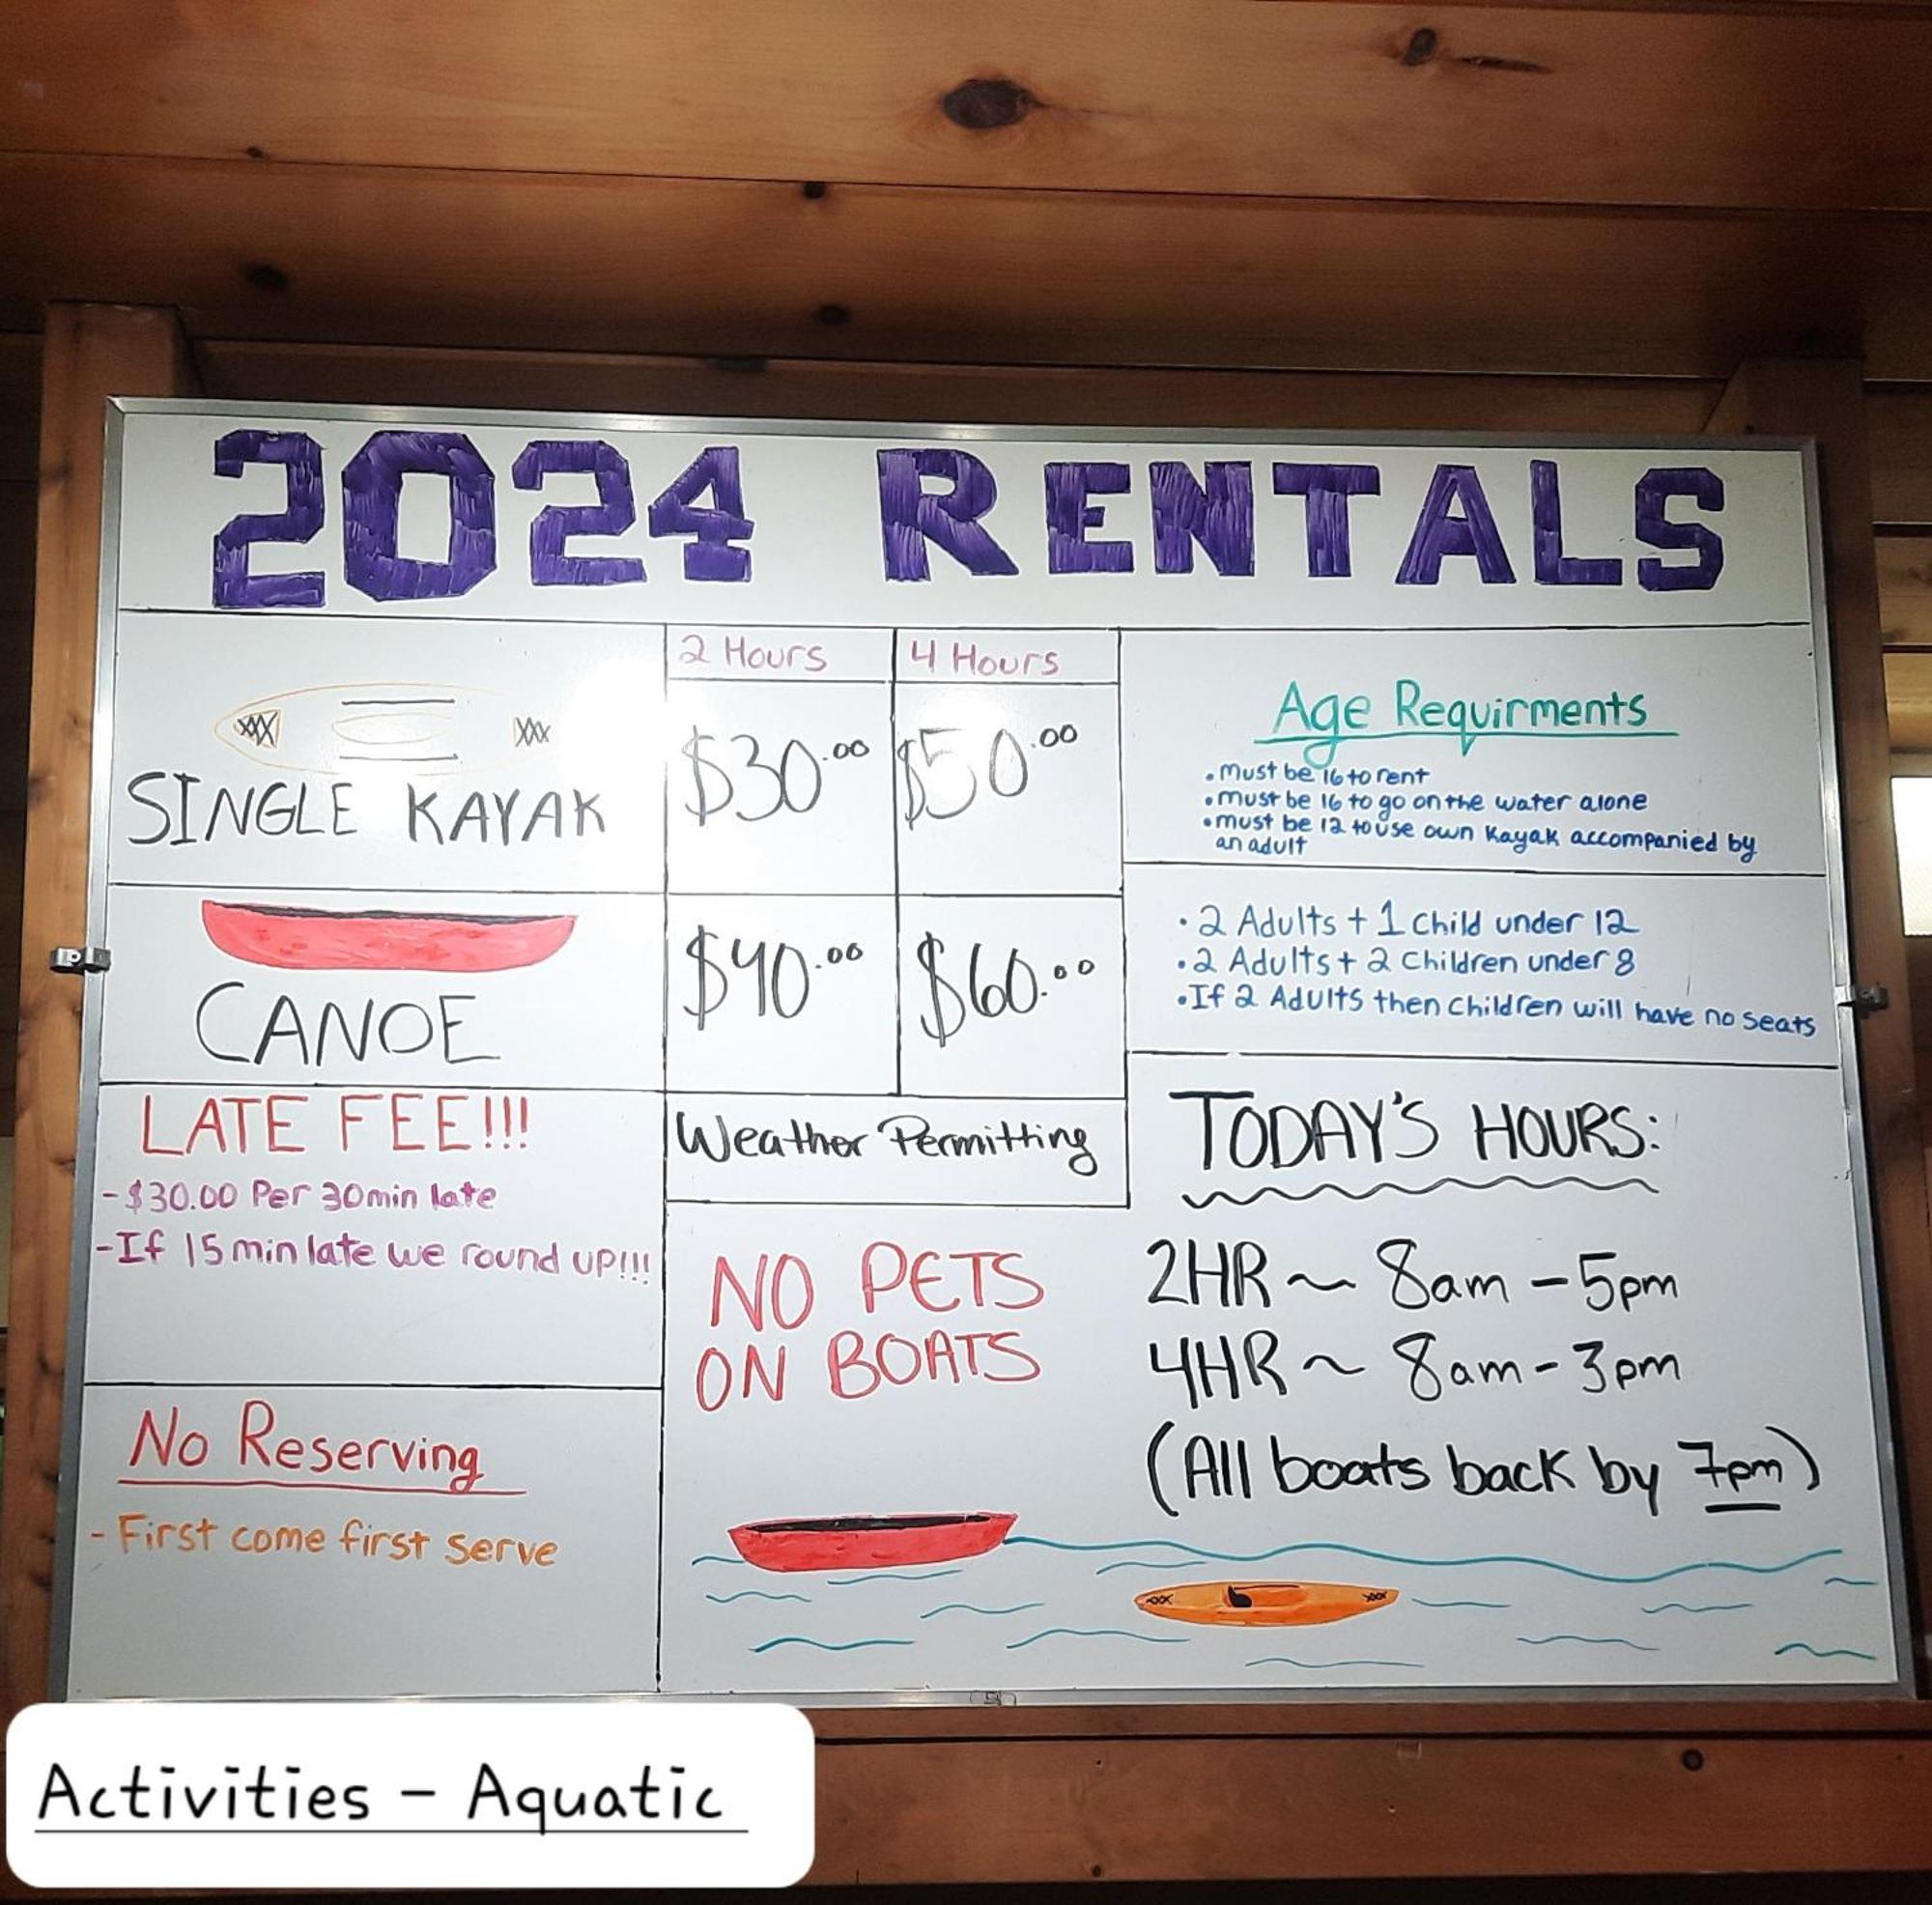 2024 RENTALS
2 Hours 4 Hours
SINGLE KAYAK $30.00 $50.00
CANOE $40.00 $60.00
Age Requirments
• Must be 16 to rent
• must be 16 to go on the water alone
• must be 12 to use own kayak accompanied by
an adult
• 2 Adults + 1 Child under 12
• 2 Adults + 2 Children under 8
• If 2 Adults then Children will have no seats
LATE FEE!!!
- $30.00 Per 30min late
- If 15 min late we round UP!!!
Weather Permitting
No Reserving
- First come first serve
NO PETS
ON BOATS
TODAY'S HOURS:
2HR ~ 8am - 5pm
4HR ~ 8am - 3pm
(All boats back by 7pm)
Activities - Aquatic